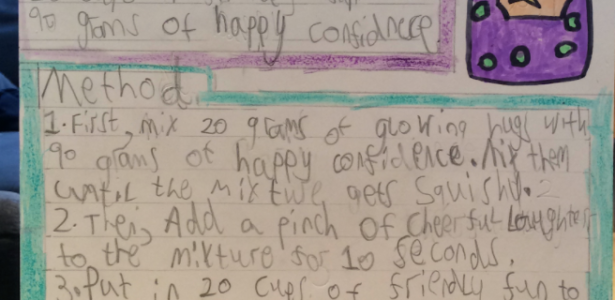 90 grams of happy confidnece
Method.
1. First, mix 20 grams of glowing hugs with
90 grams of happy confidence. Mix them
until the mixtwe gets Squishy.
2. Then, Add a pinch of cheerful laughter
to the mixture for 10 seconds.
3. Put in 20 cups of friendly fun to